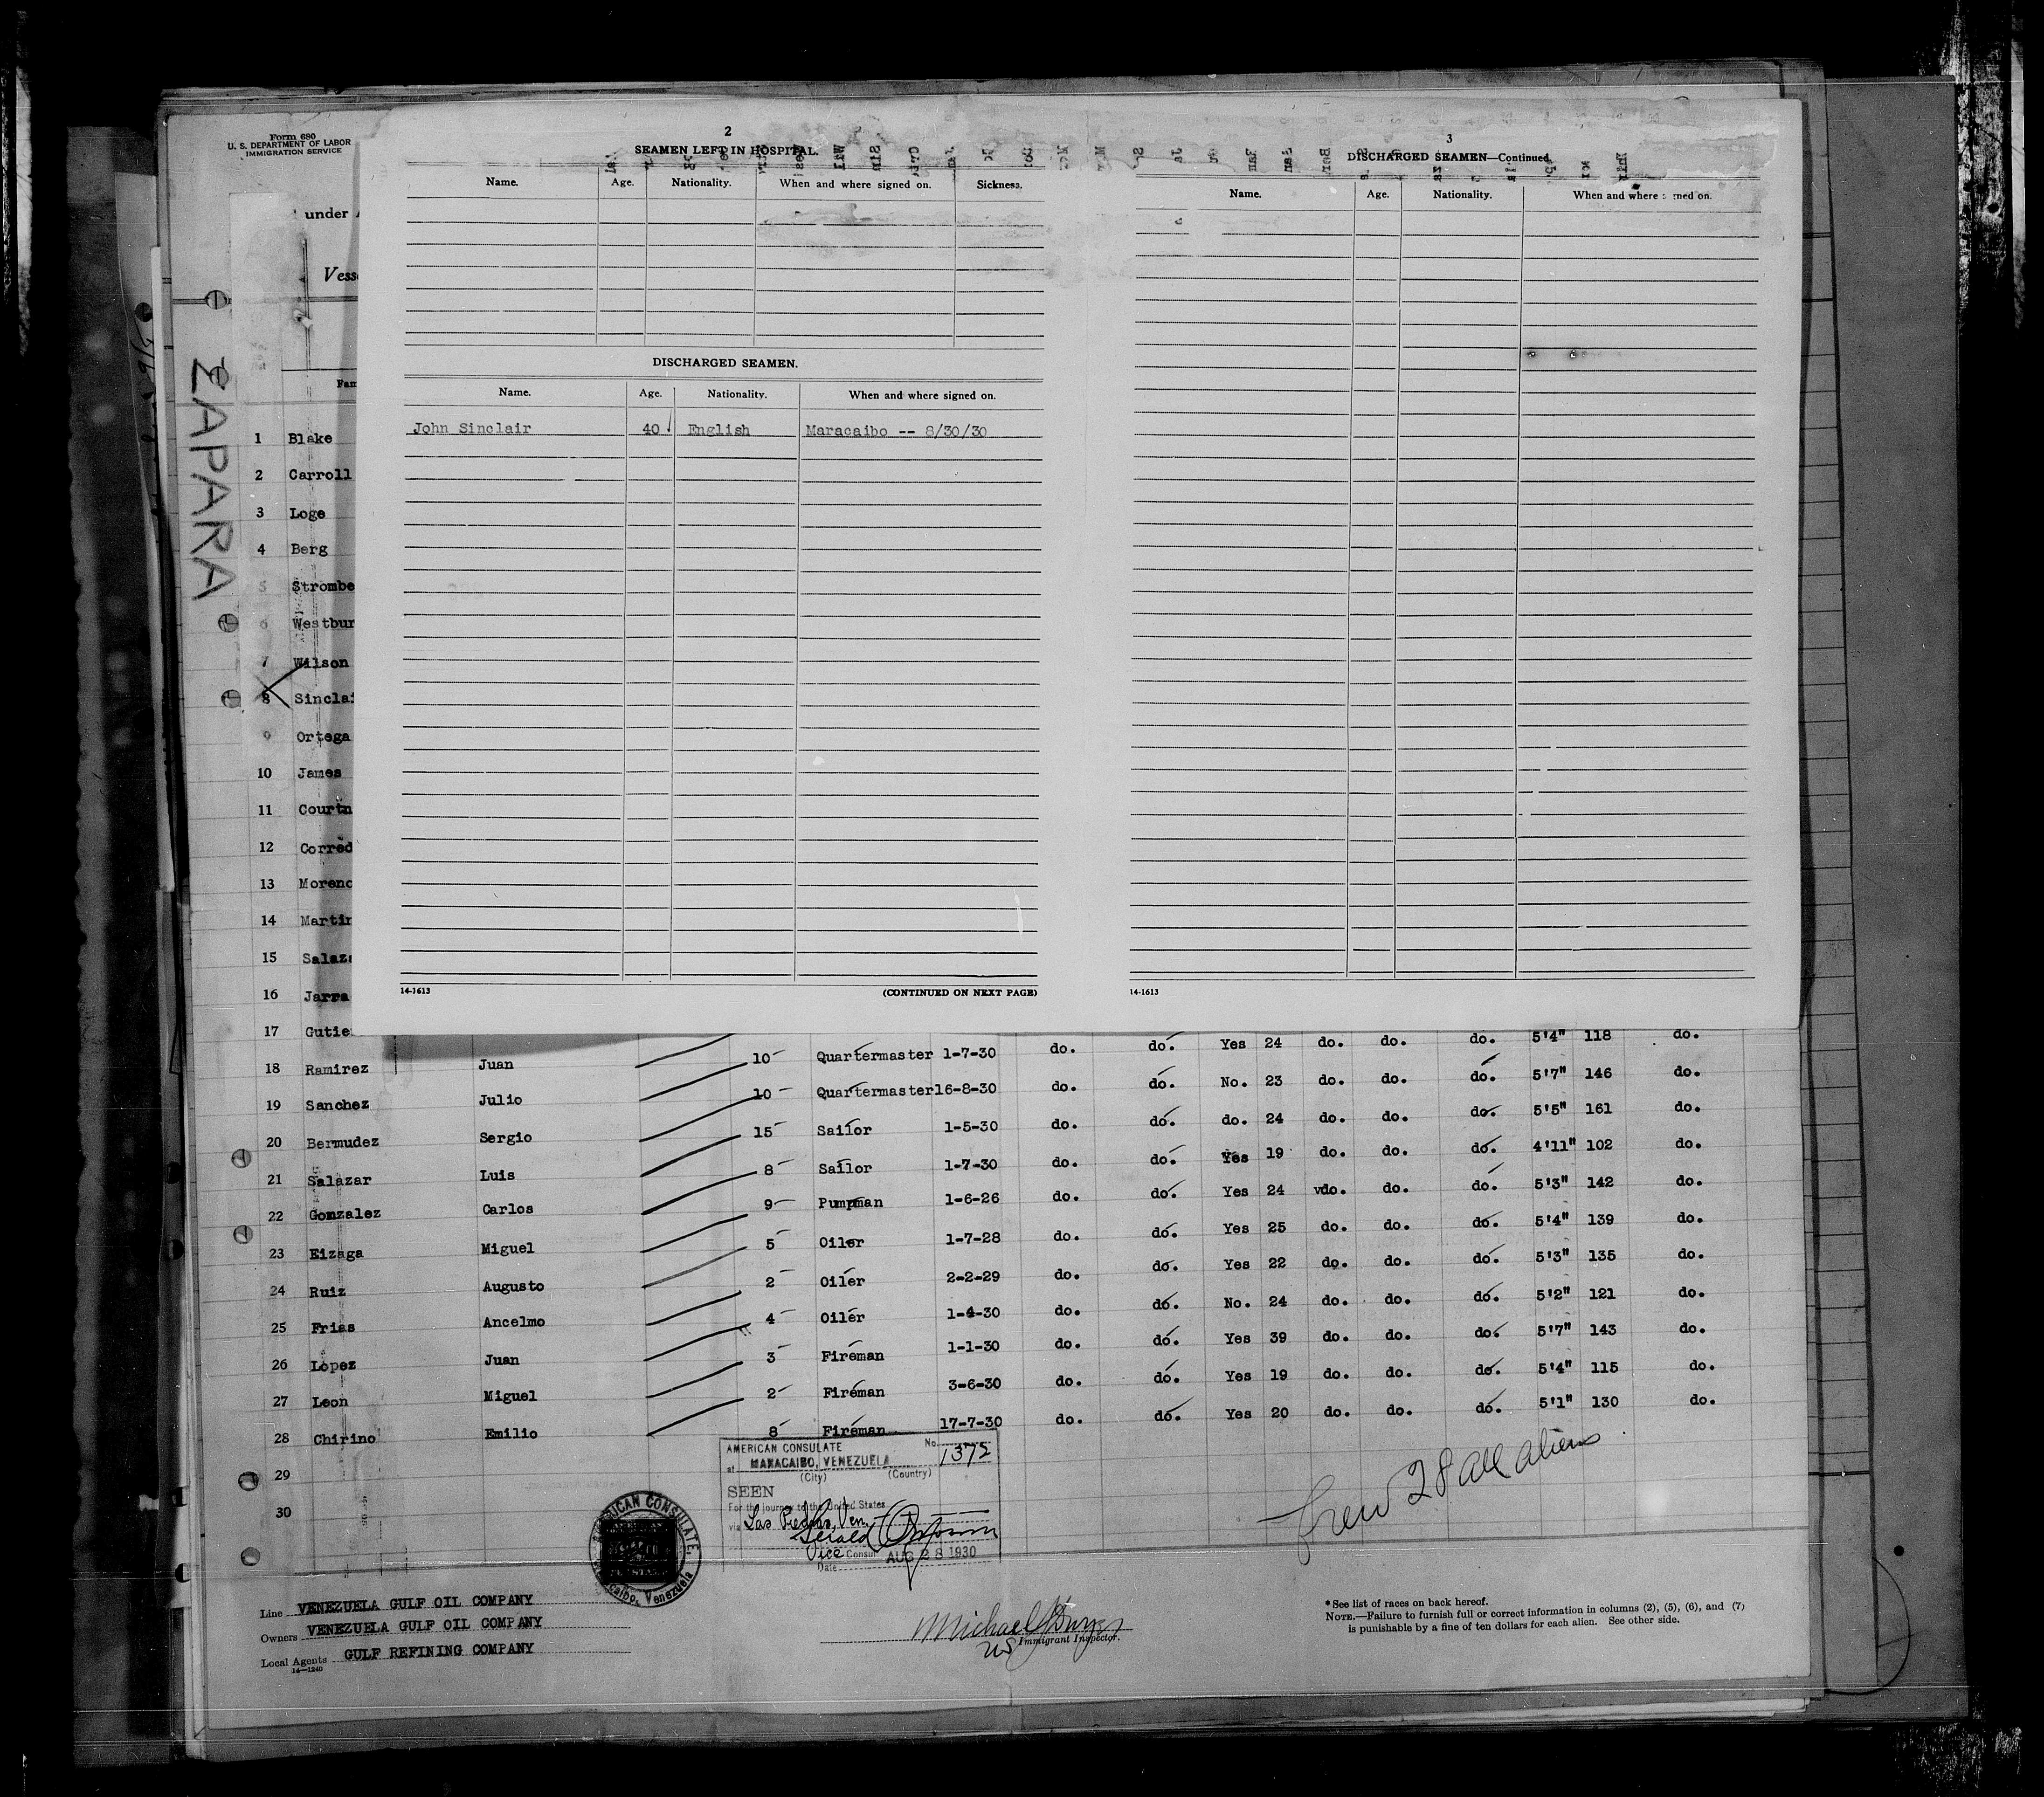 Form 680
U. S. DEPARTMENT OF LABOR
IMMIGRATION SERVICE
under
Vess
Fam
ZAPARA
2
SEAMEN LEFT IN HOSPITAL.
Name. Age. Nationality. When and where signed on. Sickness.
DISCHARGED SEAMEN.
Name. Age. Nationality. When and where signed on.
John Sinclair 40 English Maracaibo -- 8/30/30
14-1613 (CONTINUED ON NEXT PAGE)
3
DISCHARGED SEAMEN—Continued.
Name. Age. Nationality. When and where signed on.
14-1613
1 Blake
2 Carroll
3 Loge
4 Berg
5 Strombe
6 Westbur
7 Wilson
8 Sinclai
9 Ortega
10 James
11 Courtn
12 Corred
13 Moreno
14 Martin
15 Salaza
16 Jarra
17 Gutie
do. do. do. 5'4" 118 do.
18 Ramirez Juan 10 Quartermaster 1-7-30 do. do. Yes 24 do. do. do. 5'7" 146 do.
19 Sanchez Julio 10 Quartermaster 16-8-30 do. do. No. 23 do. do. do. 5'5" 161 do.
20 Bermudez Sergio 15 Sailor 1-5-30 do. do. do. 24 do. do. do. 4'11" 102 do.
21 Salazar Luis 8 Sailor 1-7-30 do. do. Yes 19 do. do. do. 5'3" 142 do.
22 Gonzalez Carlos 9 Pumpman 1-6-26 do. do. Yes 24 do. do. do. 5'4" 139 do.
23 Eizaga Miguel 5 Oiler 1-7-28 do. do. Yes 25 do. do. do. 5'3" 135 do.
24 Ruiz Augusto 2 Oiler 2-2-29 do. do. Yes 22 do. do. do. 5'2" 121 do.
25 Frias Ancelmo 4 Oiler 1-4-30 do. do. No. 24 do. do. do. 5'7" 143 do.
26 Lopez Juan 3 Fireman 1-1-30 do. do. Yes 39 do. do. do. 5'4" 115 do.
27 Leon Miguel 2 Fireman 3-6-30 do. do. Yes 19 do. do. do. 5'1" 130 do.
28 Chirino Emilio 8 Fireman 17-7-30 do. do. Yes 20 do. do.
29
30
AMERICAN CONSULATE No. 1372
at MARACAIBO, VENEZUELA
(City) (Country)
SEEN
For the journey to the United States
via Las Piedras, Ven.
Gerald
Vice Consul
Date AUG 28 1930
AMERICAN CONSULATE,
Maracaibo, Venezuela
Crew 28 all aliens
Line VENEZUELA GULF OIL COMPANY
Owners VENEZUELA GULF OIL COMPANY
Local Agents GULF REFINING COMPANY
14—1240
Michael
US Immigrant Inspector.
* See list of races on back hereof.
NOTE.—Failure to furnish full or correct information in columns (2), (5), (6), and (7)
is punishable by a fine of ten dollars for each alien. See other side.